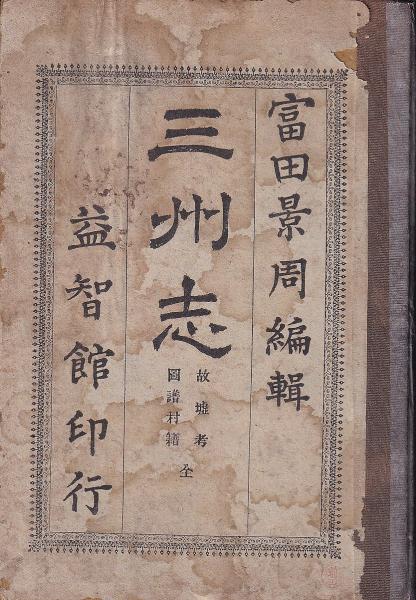 富田景周編輯
三州志
故墟考
圖譜村籍
全
益智館印行